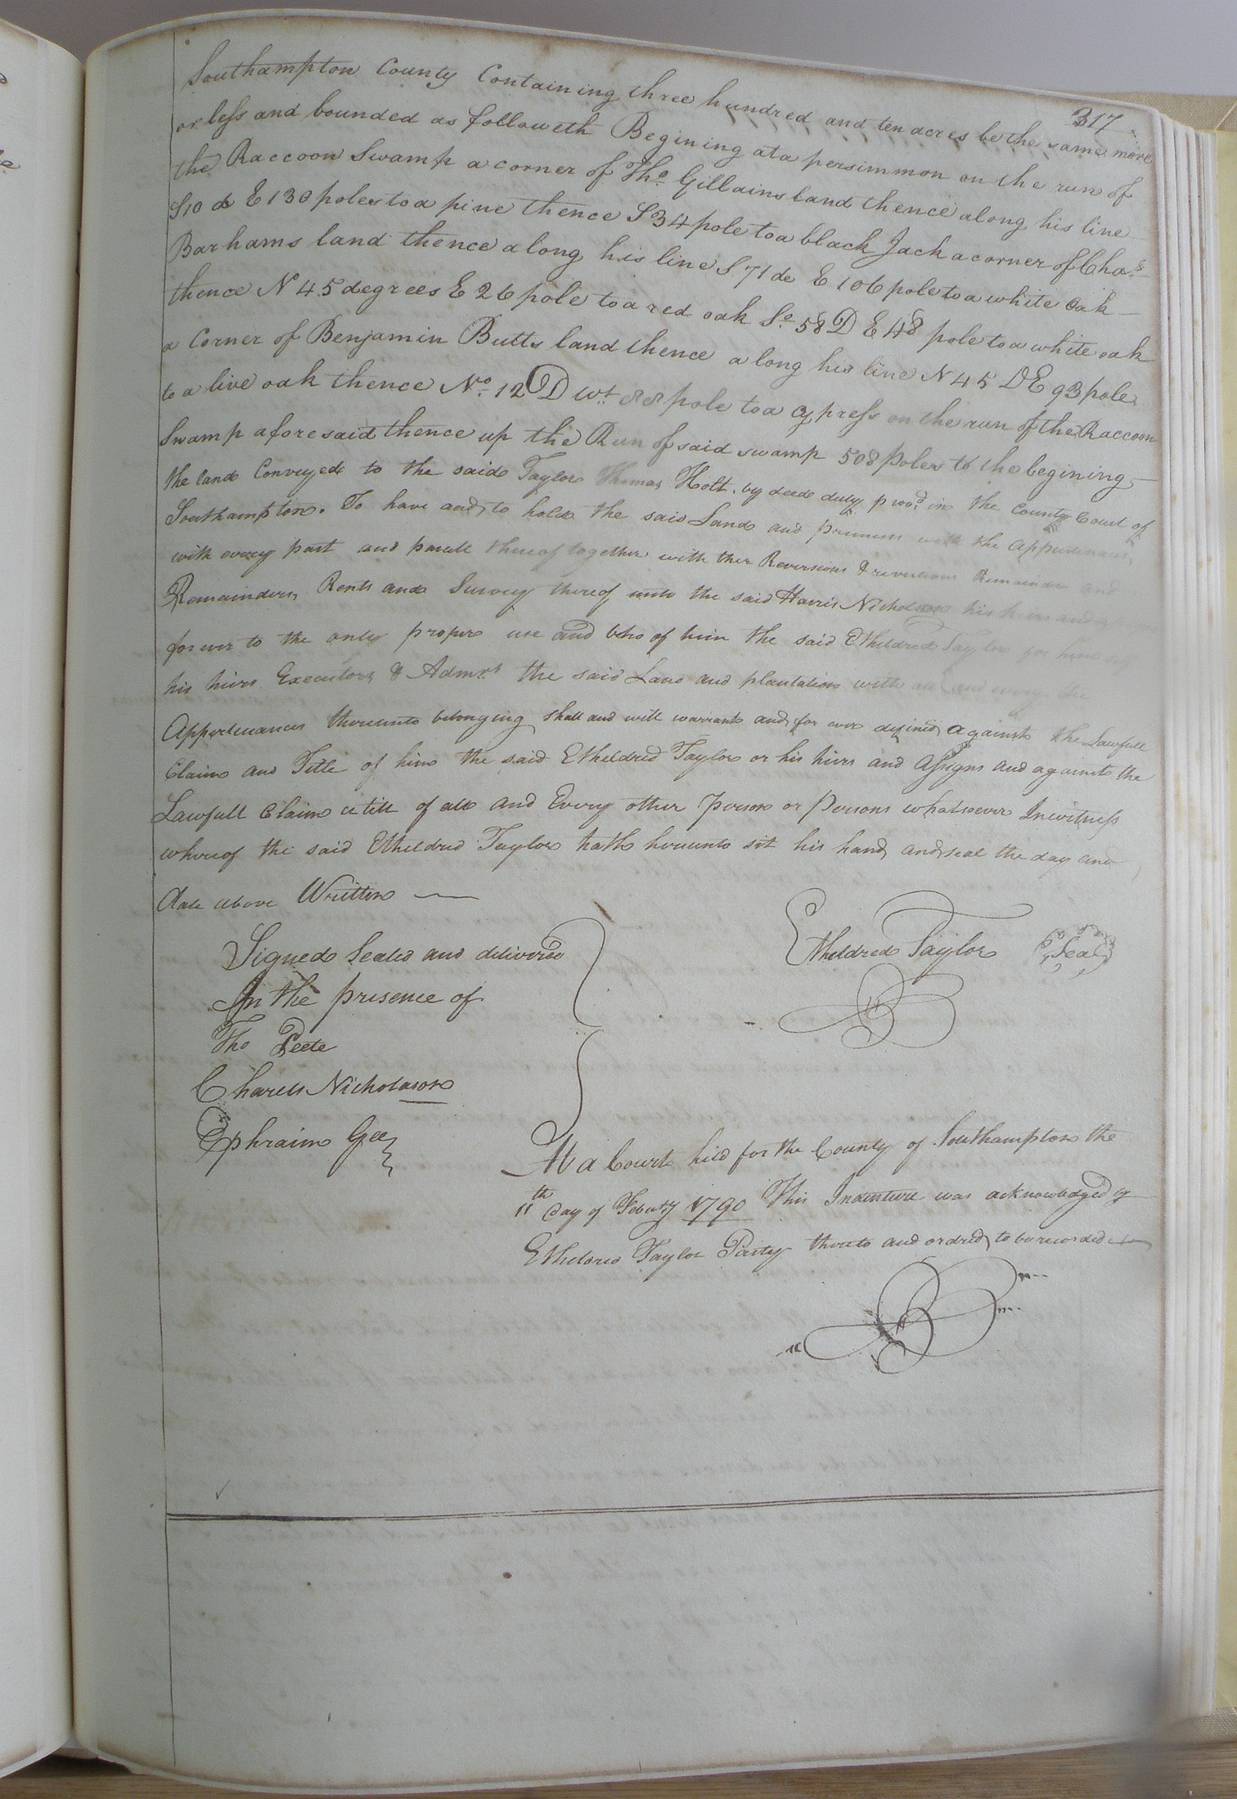 317
Southampton County Containing three hundred and ten acres be the same more
or less and bounded as followeth Begining at a persimmon on the run of
the Raccoon Swamp a corner of Tho. Gillains land thence along his line
S10 d E 130 poles to a pine thence S 34 pole to a black Jack a corner of Chas
Barhams land thence along his line S 71 de E 106 pole to a white oak
thence N 45 degrees E 26 pole to a red oak So. 58 D E 48 pole to a white oak
a Corner of Benjamin Butts land thence along his line N 45 D E 93 poles
to a live oak thence No. 12 D Wt 88 pole to a cypress on the run of the Raccoon
Swamp aforesaid thence up the Run of said swamp 508 poles to the begining
the land Conveyed to the said Taylor Thomas Holt, by deed duly provd. in the County Court of
Southampton. To have and to hold the said Land and premises with the Appurtenances
with every part and parcell thereof together with ther Reversions & reversions Remainder and
Remainders, Rents and Survey thereof unto the said Harris Nicholson his heirs and
forever to the only proper use and of him the said Etheldred Taylor for him
his heirs Executors & Admrs the said Land and plantation with all and every the
Appurtenances thereunto belonging shall and will warrant and for ever defend against the Lawfull
Claim and Title of him the said Etheldred Taylor or his heirs and Assigns and against the
Lawfull Claim & title of all and Every other Person or Persons whatsoever In witness
whereof the said Etheldred Taylor hath hereunto set his hand and seal the day and
date above Written
Signed Sealed and delivered
In the presence of
Tho Peete
Charels Nicholason
Ephraim Gee
Etheldred Taylor Seal
At a Court held for the County of Southampton the
11th day of Febury 1790 This Indenture was acknowledged by
Etheldred Taylor Party thereto and ordred to be recorded